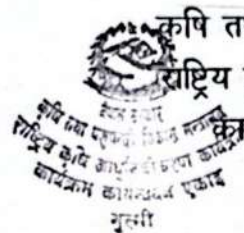 कृषि त
राष्ट्रिय
का
नेपाल सरकार
कृषि तथा पशुपन्छी विकास मन्त्रालय
राष्ट्रिय कृषि आधुनिकीकरण कार्यक्रम
कार्यक्रम कार्यान्वयन एकाइ
गुल्मी